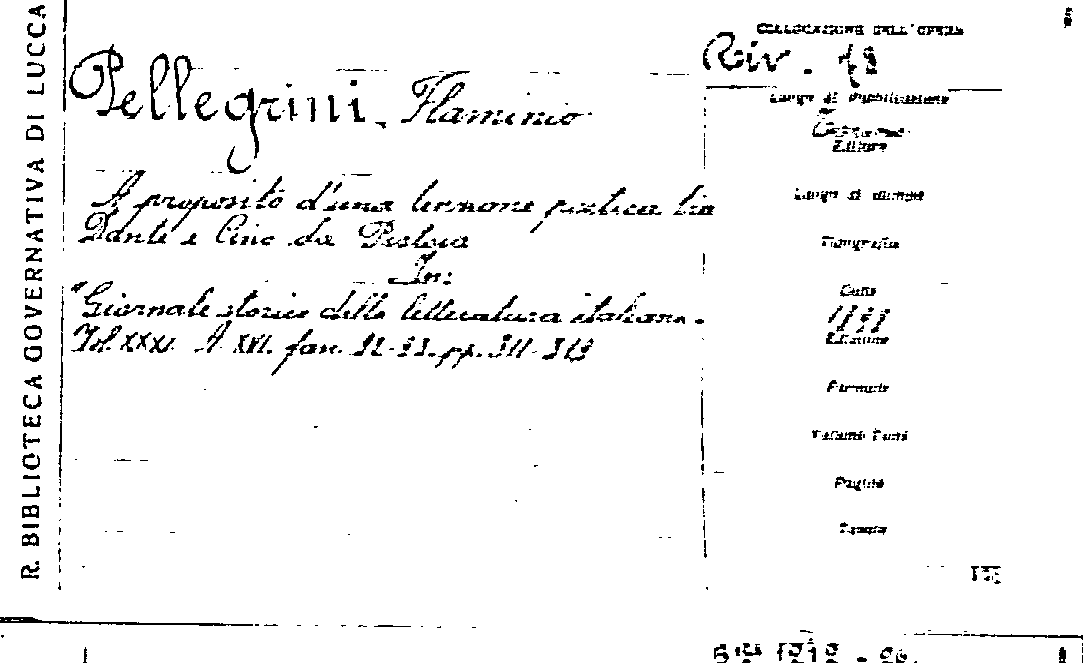 R. BIBLIOTECA GOVERNATIVA DI LUCCA
COLLOCAZIONE DELL'OPERA
Riv.
Pellegrini, Flaminio
Luogo di Pubblicazione
Editore
A proposito d'una tenzone poetica tra
Dante e Cino da Pistoia
In:
"Giornale storico della letteratura italiana.
Vol. XXXI. A. XVI. fasc. 92-93. pp. 311-319
Luogo di stampa
Tipografia
Data
Edizione
Formato
Volumi Tomi
Pagine
Tavole